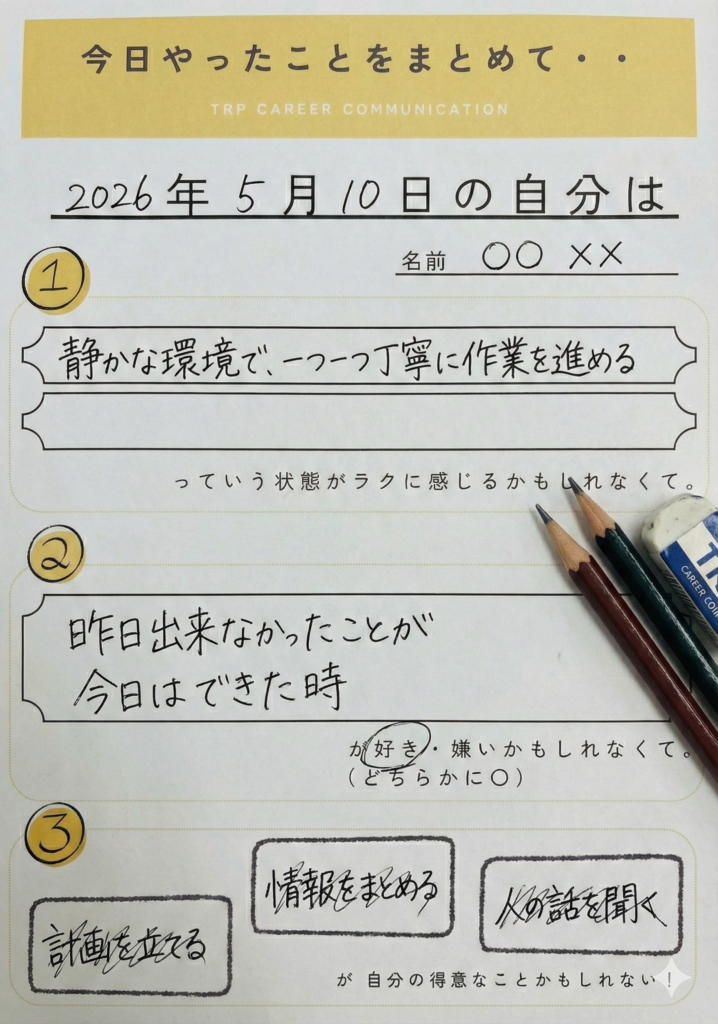 今日やったことをまとめて・・
TRP CAREER COMMUNICATION
2026年 5月10日の自分は
名前 〇〇 ××
1
静かな環境で、一つ一つ丁寧に作業を進める
っていう状態がラクに感じるかもしれなくて。
2
昨日出来なかったことが
今日はできた時
が好き・嫌いかもしれなくて。
(どちらかに〇)
TR
CAREER COM
3
情報をまとめる
人の話を聞く
計画を立てる
が 自分の得意なことかもしれない!